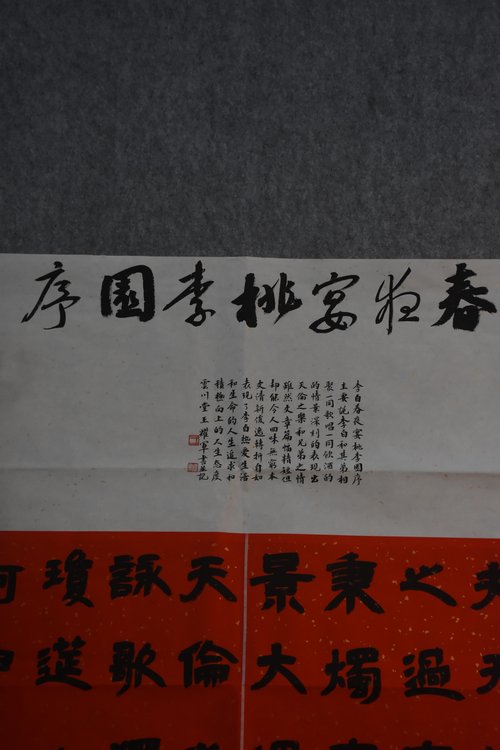 春夜宴桃李園序
李白春夜宴桃李園序
主要説李白和其弟相
聚一同歌唱一同飲酒
的情景深刻的表現出
天倫之樂和兄弟之情
雖然文章篇幅精短但
却能令人回味無窮本
文清新俊逸轉折自如
表現了李白熱愛生活
和生命的人生追求和
積極向上的人生态度
雲川堂王耀軍書並記
夫天
之過
秉燭
景大
天倫
詠歌
瓊筵